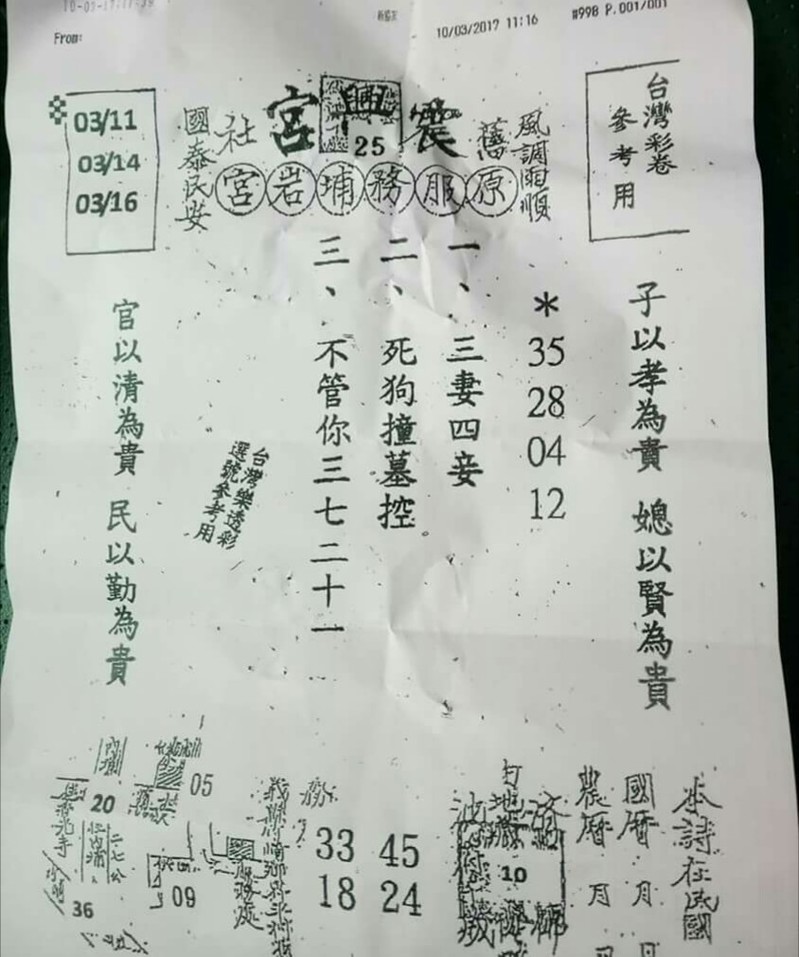 From:
10/03/2017 11:16
#998 P.001/001
03/11
03/14
03/16
國泰民安
社
宮興震
25
舊
風調雨順
宮岩埔務服原
台灣彩卷
參考用
子以孝為貴 媳以賢為貴
*
35
28
04
12
一、三妻四妾
二、死狗撞墓控
三、不管你三七二十一
台灣樂透彩
選號參考用
官以清為貴 民以勤為貴
本詩在民國
國曆 月 日
農曆 月 日
10
45
24
33
18
服務處
05
09
內埔
20
36